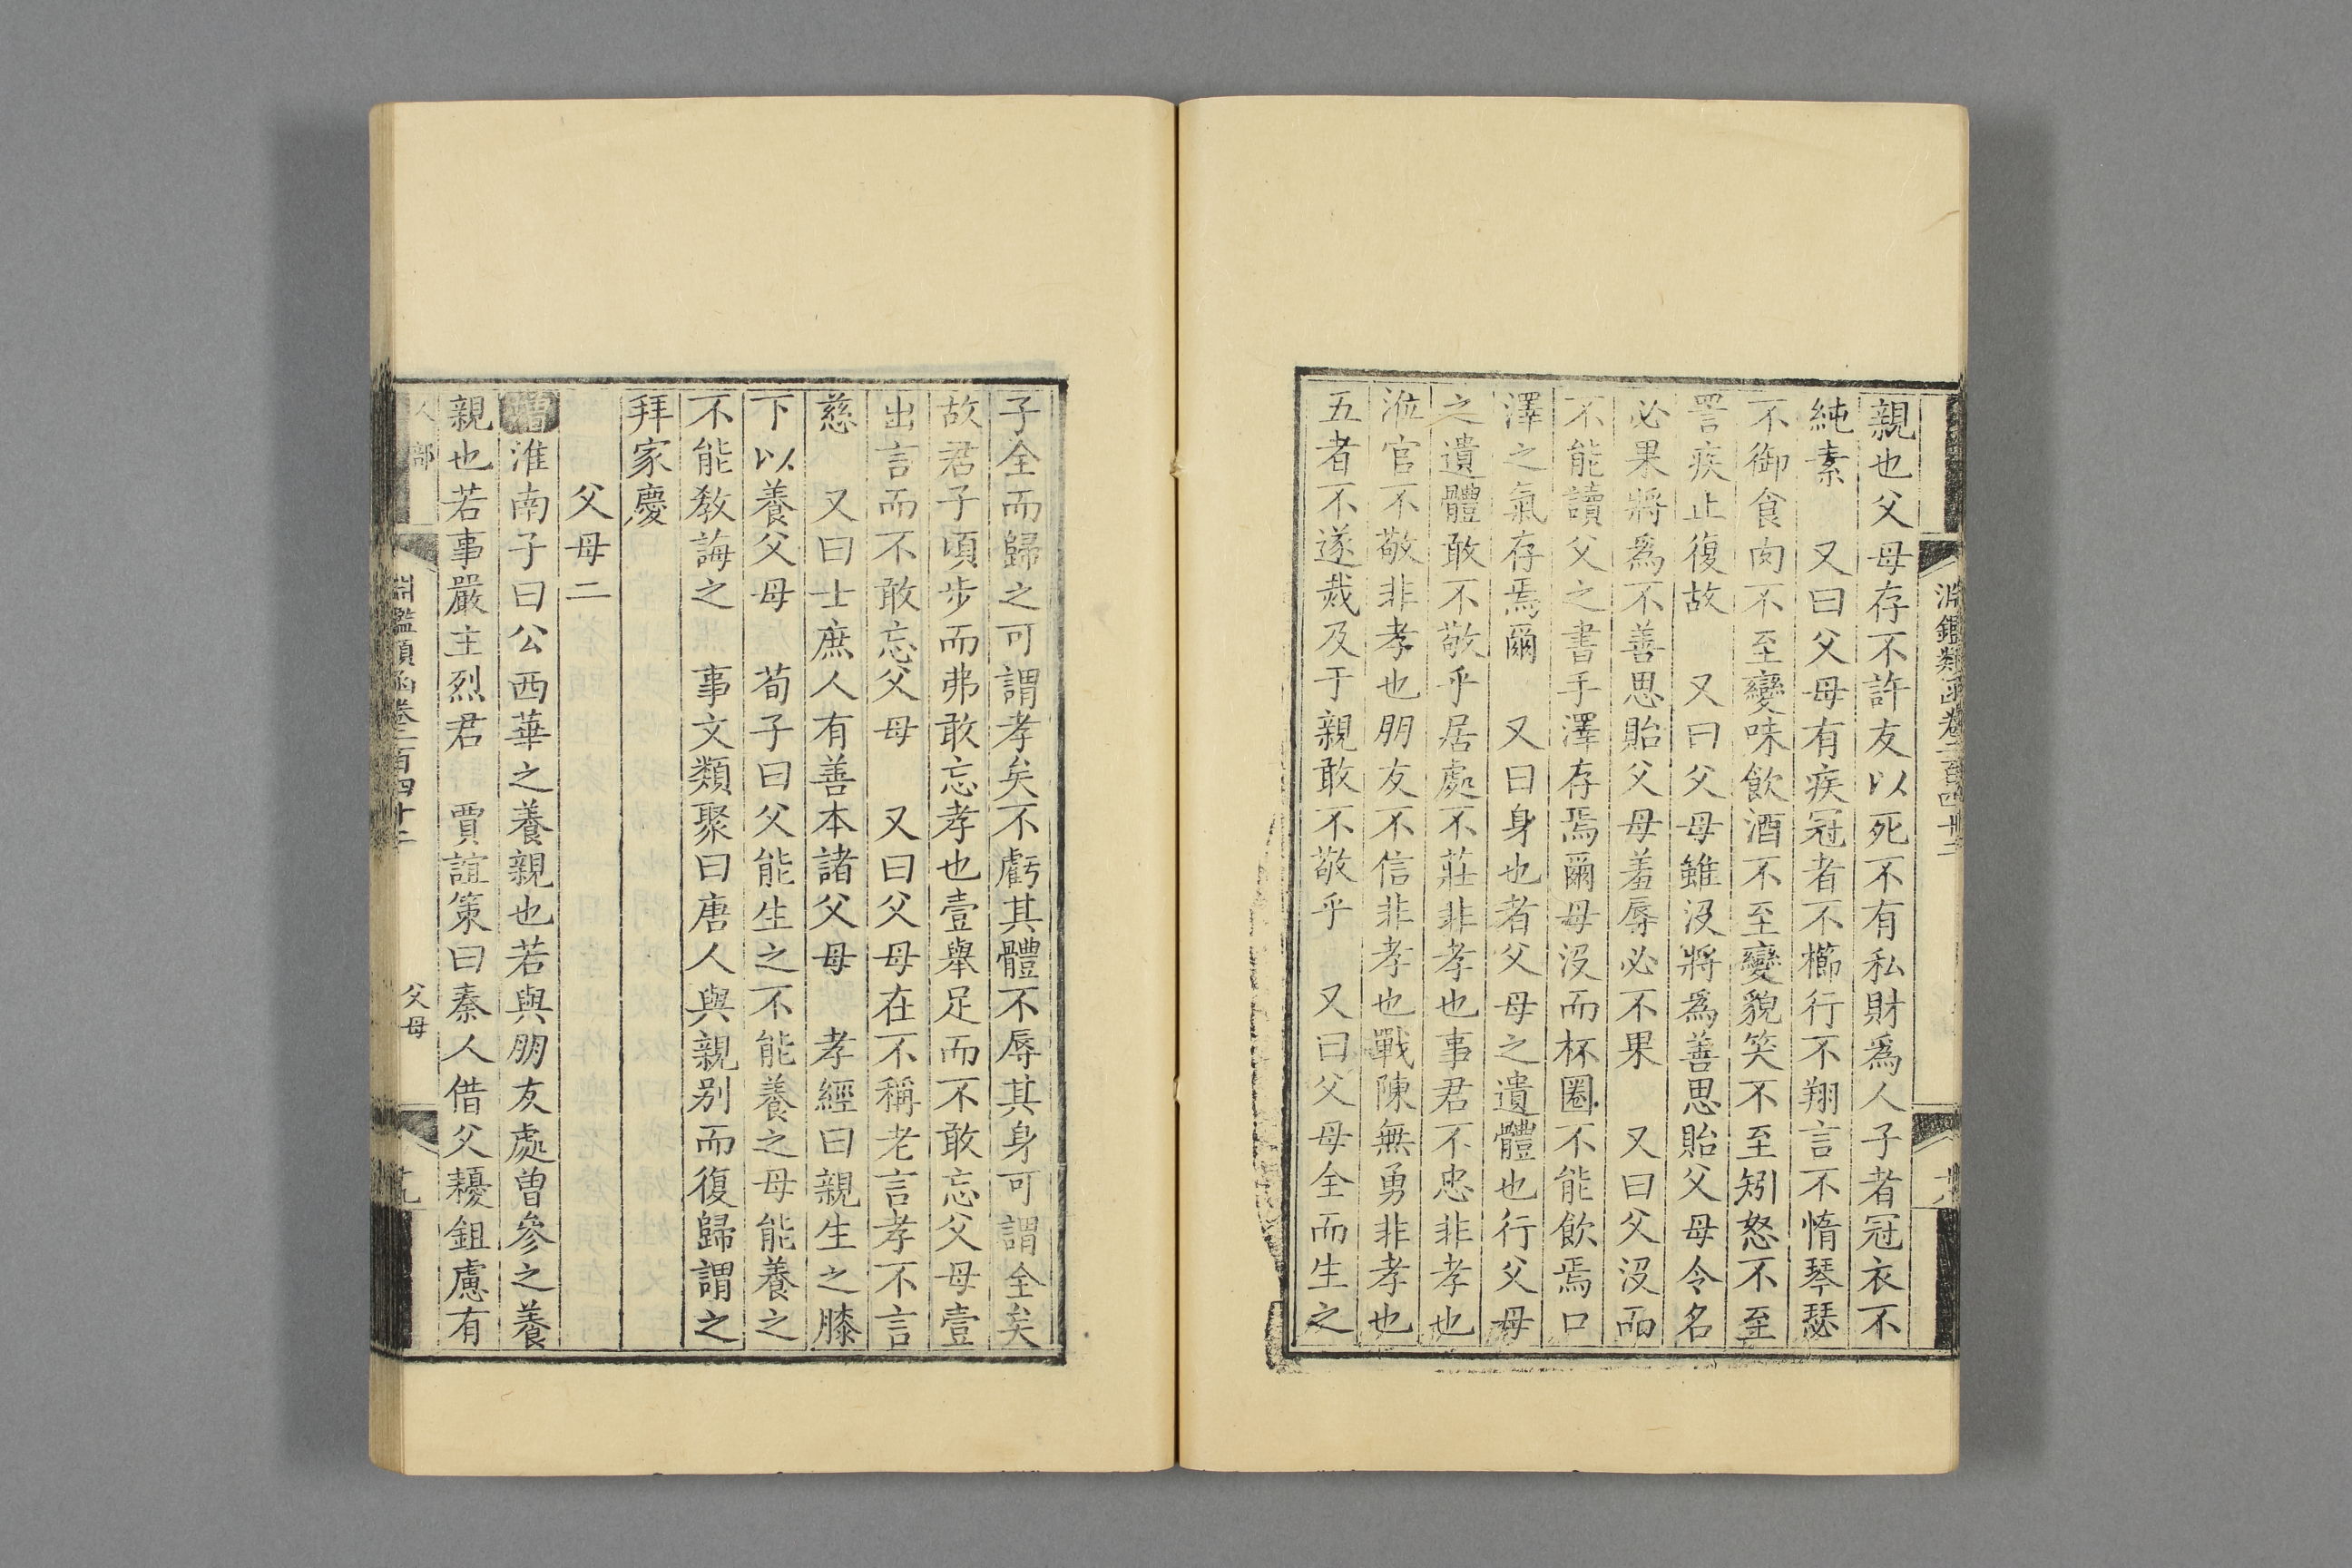 淵鑑類函卷二百四十二
親也父母存不許友以死不有私財爲人子者冠衣不
純素　又曰父母有疾冠者不櫛行不翔言不惰琴瑟
不御食肉不至變味飲酒不至變貌笑不至矧怒不至
詈疾止復故　又曰父母雖沒將爲善思貽父母令名
必果將爲不善思貽父母羞辱必不果　又曰父沒而
不能讀父之書手澤存焉爾母沒而杯圈不能飲焉口
澤之氣存焉爾　又曰身也者父母之遺體也行父母
之遺體敢不敬乎居處不莊非孝也事君不忠非孝也
涖官不敬非孝也朋友不信非孝也戰陳無勇非孝也
五者不遂烖及于親敢不敬乎　又曰父母全而生之
子全而歸之可謂孝矣不虧其體不辱其身可謂全矣
故君子頃步而弗敢忘孝也壹舉足而不敢忘父母壹
出言而不敢忘父母　又曰父母在不稱老言孝不言
慈　又曰士庶人有善本諸父母　孝經曰親生之膝
下以養父母　荀子曰父能生之不能養之母能養之
不能敎誨之　事文類聚曰唐人與親别而復歸謂之
拜家慶
父母二
增淮南子曰公西華之養親也若與朋友處曾參之養
親也若事嚴主烈君　賈誼策曰秦人借父耰鉏慮有
人部　淵鑑類函卷二百四十二　父母　十九